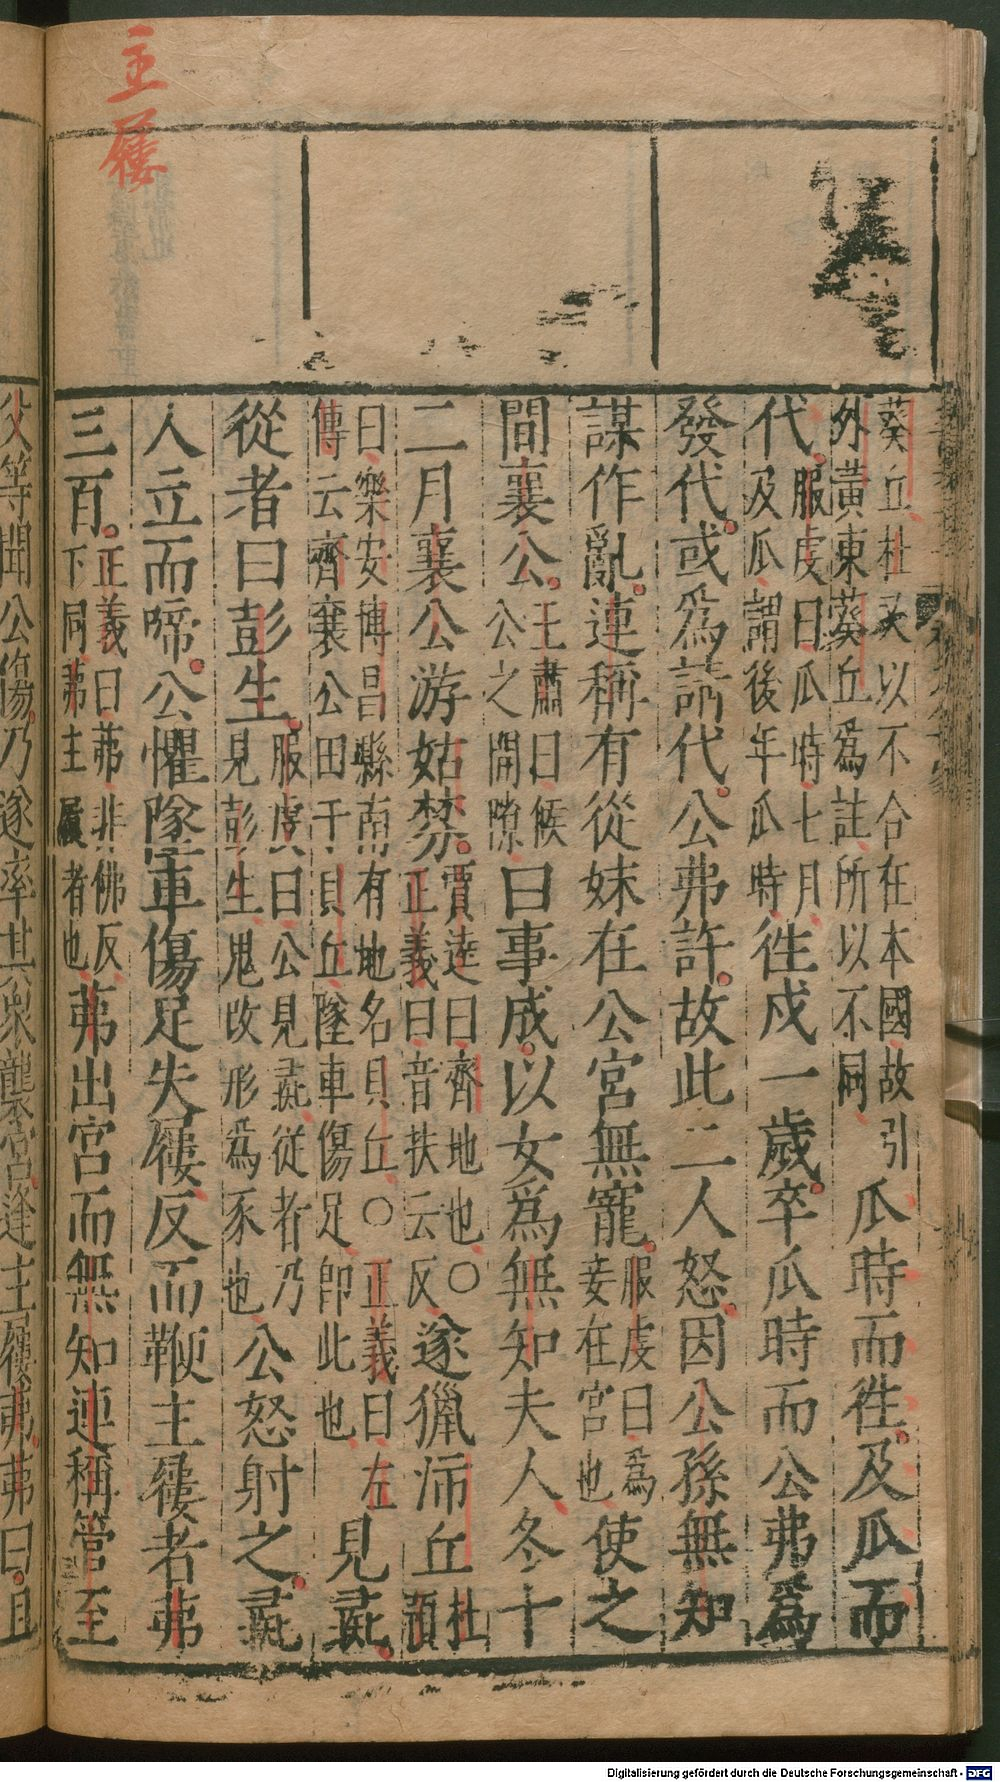 主屨
葵丘杜又以不合在本國故引
外黃東葵丘為註所以不同
瓜時而徃及瓜而
代。服虔曰瓜時七月
及瓜謂後年瓜時
徃戍一歲。卒瓜時而公弗為
發代。或為請代。公弗許。故此二人怒。因公孫無知
謀作亂。連稱有從妹在公宮無寵。服虔曰為
妾在宮也
使之
間襄公。王肅曰候
公之間隙
曰事成。以女為無知夫人冬十
二月襄公游姑棼。賈逵曰齊地也○
正義曰音扶云反
遂獵沛丘杜
預
曰樂安博昌縣南有地名貝丘○正義曰左
傳云齊襄公田于貝丘墜車傷足即此也
見彘。
從者曰彭生。服虔曰公見彘從者乃
見彭生鬼改形為豕也
公怒射之。彘
人立而啼。公懼墜車傷足失屨。反而鞭主屨者茀
三百。正義曰茀非佛反
下同茀主屨者也
茀出宮而無知連稱管至
父等聞公傷。乃遂率其衆襲宮。逢主屨茀。茀曰。且
Digitalisierung gefördert durch die Deutsche Forschungsgemeinschaft - DFG